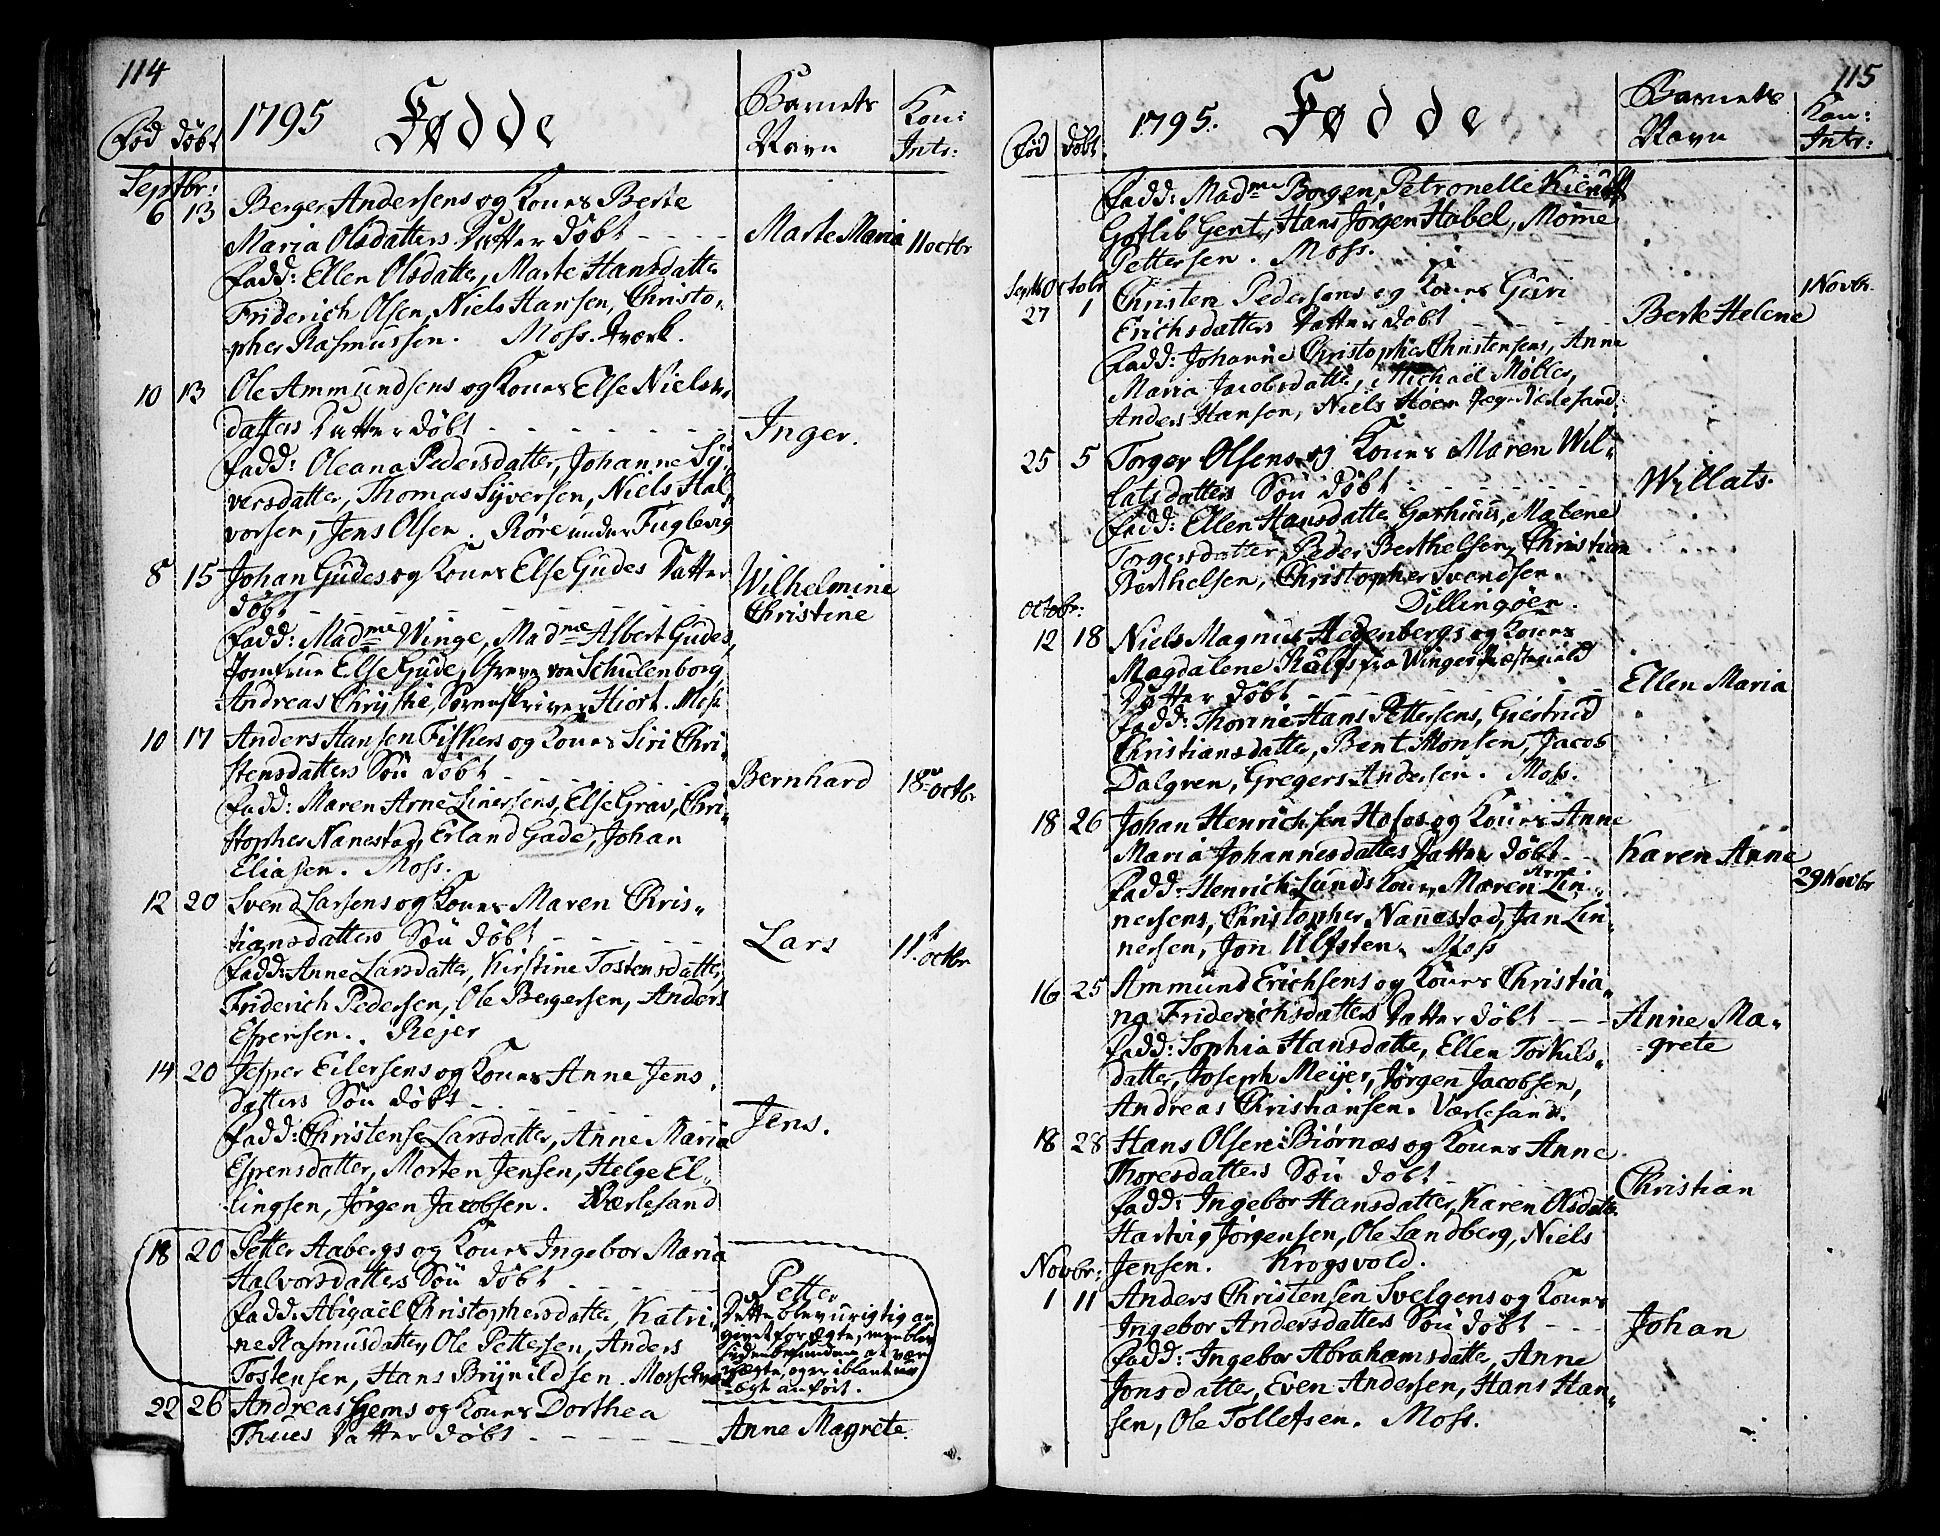 114
1795 Fødde
Barnets Navn
Kon: Intr:
Fød døbt
Septbr:
6 13 Berger Andersens og Kones Berte
Maria Olsdatters Datter døbt - - - - Marte Maria 11 octbr
Fadd: Ellen Olsdatter, Marte Hansdatter
Friderich Olsen, Niels Hansen, Christo-
pher Rasmussen. Moss. Værk.
10 13 Ole Ammundsens og Kones Else Niels-
datters Datter døbt - - - - Inger.
Fadd: Oleana Pedersdatter, Johanne Sy-
versdatter, Thomas Syversen, Niels Hal-
vorsen, Jens Olsen. Røre under Fuglevig
8 15 Johan Gudes og Kones Else Gudes Datter Wilhelmine
døbt - - - - Christine
Fadd: Madme Winge, Madme Albert Gudes,
Jomfrue Else Gude, Greve von Schulenborg,
Andreas Chrystie, Sorenskriver Hiort. Moss
10 17 Anders Hansen Fiskers og Kones Siri Chri-
stensdatters Søn døbt - - - Bernhard 18de octbr
Fadd: Maren Arne Linersens, Else Grav, Chri-
stopher Nanestad, Erland Gade, Johan
Eliasen. Moss.
12 20 Svend Larsens og Kones Maren Chris-
tiansdatters Søn døbt - - - - Lars 11t octbr
Fadd: Anne Larsdatter, Kirstine Tostensdatter,
Friderich Pedersen, Ole Bergersen, Anders
Espensen. Rejer
14 20 Jesper Eilersens og Kones Anne Jens-
datters Søn døbt - - - - Jens.
Fadd: Christense Larsdatter, Anne Maria
Espensdatter, Morten Jensen, Helge El-
lingsen, Jørgen Jacobsen. Værlesand
18 20 Petter Aabergs og Kones Ingebor Maria
Halvorsdatters Søn døbt - - - Petter
Fadd: Abigaël Christophersdatter, Katri-
ne Rasmusdatter, Ole Pettersen, Anders
Tostensen, Hans Brynildsen. Mosse
Dette blev urigtig an
givet for ægte, men blev
siden befunden at være
uægte, og er iblant uæ
ægte anført.
22 26 Andreas Gjems og Kones Dorthea
Thues Datter døbt - - - - Anne Magrete.
115
1795. Fødde
Barnets Navn
Kon: Intr:
Fød døbt
Fadd: Madme Borgen, Petronelle
Gotlib Gent, Hans Jørgen Habel, Mønne
Pettersen. Moss.
Septbr Octobr
27 1 Christen Pedersens og Kones Guri 1 Novbr.
Erichsdatters Datter døbt - - - - Berte Helene
Fadd: Johanne Christopher Christensens, Anne
Maria Jacobsdatter, Michaël Møller,
Anders Hansen, Niels Værlesand.
25 5 Torger Olsens og Kones Maren Wil-
latsdatters Søn døbt - - - - Willats.
Fadd: Ellen Hansdatter Garhuus, Malene
Torgersdatter, Peder Berthelsen, Christian
Berthelsen, Christopher Svendsen.
Dillingøen.
Octobr:
12 18 Niels Magnus Hedenbergs og Kones
Magdalene fra Winger Præstegield
Datter døbt - - - - Ellen Maria
Fadd: Thorine Hans Pettersens, Giertrud
Christiansdatter, Bent Monsen, Jacob
Dalgren, Gregers Andersen. Moss.
18 26 Johan Henrichsen Hofos og Kones Anne
Maria Johannesdatters Datter døbt - - Karen Anne 29 Novbr
Fadd: Henrich Lunds Kone, Maren Arne Lin-
nersens, Christopher Nannestad, Jan Lin-
nersen, Jon Ulfsten. Moss
16 25 Ammund Erichsens og Kones Christia-
na Friderichsdatters Datter døbt - - - Anne Ma-
grete
Fadd: Sophia Hansdatter, Ellen Torkils-
datter, Joseph Meijer, Jørgen Jacobsen,
Andreas Christiansen. Værlesand.
18 28 Hans Olsen Biørnæs og Kones Anne
Thoresdatters Søn døbt - - Christian
Fadd: Ingebor Hansdatter, Karen Olsdatter
Hartvig Jørgensen, Ole Sandberg, Niels
Jensen. Krogsvold.
Novbr:
1 11 Anders Christensen Svelgens og Kones
Ingebor Andersdatters Søn døbt - - Johan
Fadd: Ingebor Abrahamsdatter, Anne
Jonsdatter, Even Andersen, Hans Han-
sen, Ole Tollefsen. Moss.